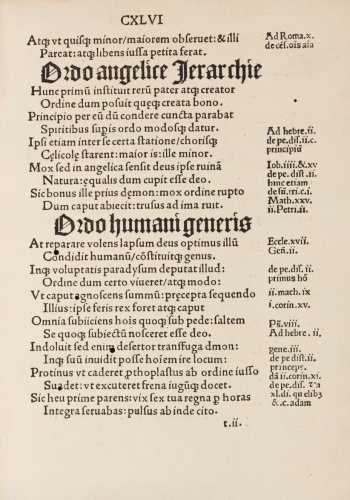 CXLVI
Atq; vt quisq; minor/maiorem obseruet: & illi
Pareat: atq; libens iussa petita ferat.
Ordo angelice Jerarchie
Hunc primū instituit rerū pater atq; creator
Ordine dum posuit quęq; creata bono.
Principio per eū dū condere cuncta parabat
Spiritibus supis ordo modosq; datur.
Ipsi etiam inter se certa statione/chorisq;
Cęlicolę starent: maior is: ille minor.
Mox sed in angelica sensit deus ipse ruinā
Natura: ęqualis dum cupit esse deo.
Sic bonus ille prius dęmon: mox ordine rupto
Dum caput abiecit: trusus ad ima ruit.
Ordo humani generis
At reparare volens lapsum deus optimus illū
Condidit humanū/cōstituitq; genus.
Inq; voluptatis paradysum deputat illud:
Ordine dum certo viueret/atq; modo:
Vt caput agnoscens summū: pręcepta sequendo
Illius: ipse feris rex foret atq; caput
Omnia subiiciens hoīs quoq; sub pede: saltem
Se quoq; subiectū nosceret esse deo.
Indoluit sed enim desertor transfuga dmon:
Inq; suū inuidit posse hoīem ire locum:
Protinus vt caderet ꝓthoplastus ab ordine iusso
Suadet: vt excuteret frena iugūq; docet.
Sic heu prime parens: vix sex tua regna ꝑ horas
Integra seruabas: pulsus ab inde cito.
t.ii.
Ad Roma.x.
de cēs. oīs aīa
Ad hebre.ii.
de pe.dis.ii.c.
principiū
Iob.iiii.& xv
de pe.dist.ii.
hunc etiam
de sū.tri.c.i.
Math.xxv.
ii.Petri.ii.
Eccle.xvii.
Geñ.ii.
de pe.dis.ii.
primus hō
ii.mach.ix
i.corin.xv.
Pš.viii.
Ad hebre.ii.
gene.iii.
de pe dist.ii.
princeps.
dā ii.corin.xi.
de pe.dis. ii.a
xl.di. qu elibz
&.c.adam